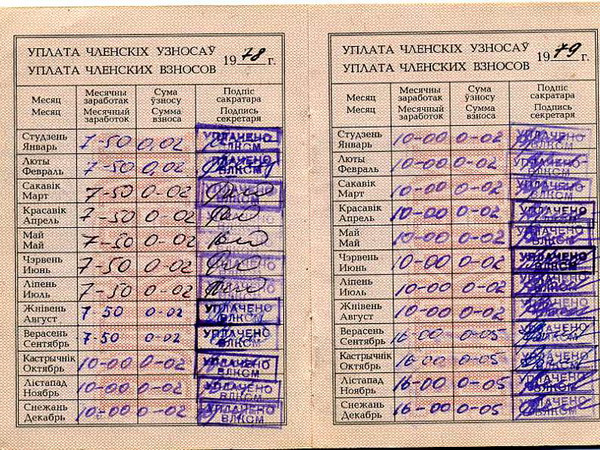 УПЛАТА ЧЛЕНСКІХ УЗНОСАЎ
УПЛАТА ЧЛЕНСКИХ ВЗНОСОВ
1978 г.
Месяц Месячны заработак Сума ўзносу Подпіс сакратара
Месяц Месячный заработок Сумма взноса Подпись секретаря
Студзень
Январь 7-50 0,02 УПЛАЧЕНО ВЛКСМ
Люты
Февраль 7-50 0,02 УПЛАЧЕНО ВЛКСМ
Сакавік
Март 7-50 0-02 УПЛАЧЕНО ВЛКСМ
Красавік
Апрель 7-50 0-02 УПЛАЧЕНО ВЛКСМ
Май
Май 7-50 0-02 УПЛАЧЕНО ВЛКСМ
Чэрвень
Июнь 7-50 0-02 УПЛАЧЕНО ВЛКСМ
Ліпень
Июль 7-50 0-02 УПЛАЧЕНО ВЛКСМ
Жнівень
Август 7-50 0-02 УПЛАЧЕНО ВЛКСМ
Верасень
Сентябрь 7-50 0-02 УПЛАЧЕНО ВЛКСМ
Кастрычнік
Октябрь 10-00 0-02 УПЛАЧЕНО ВЛКСМ
Лістапад
Ноябрь 10-00 0-02 УПЛАЧЕНО ВЛКСМ
Снежань
Декабрь 10-00 0-02 УПЛАЧЕНО ВЛКСМ
УПЛАТА ЧЛЕНСКІХ УЗНОСАЎ
УПЛАТА ЧЛЕНСКИХ ВЗНОСОВ
1979 г.
Месяц Месячны заработак Сума ўзносу Подпіс сакратара
Месяц Месячный заработок Сумма взноса Подпись секретаря
Студзень
Январь 10-00 0-02 УПЛАЧЕНО ВЛКСМ
Люты
Февраль 10-00 0-02 УПЛАЧЕНО ВЛКСМ
Сакавік
Март 10-00 0-02 УПЛАЧЕНО ВЛКСМ
Красавік
Апрель 10-00 0-02 УПЛАЧЕНО ВЛКСМ
Май
Май 10-00 0-02 УПЛАЧЕНО ВЛКСМ
Чэрвень
Июнь 10-00 0-02 УПЛАЧЕНО ВЛКСМ
Ліпень
Июль 10-00 0-02 УПЛАЧЕНО ВЛКСМ
Жнівень
Август 10-00 0-02 УПЛАЧЕНО ВЛКСМ
Верасень
Сентябрь 16-00 0-05 УПЛАЧЕНО ВЛКСМ
Кастрычнік
Октябрь 16-00 0-05 УПЛАЧЕНО ВЛКСМ
Лістапад
Ноябрь 16-00 0-05 УПЛАЧЕНО ВЛКСМ
Снежань
Декабрь 16-00 0-05 УПЛАЧЕНО ВЛКСМ